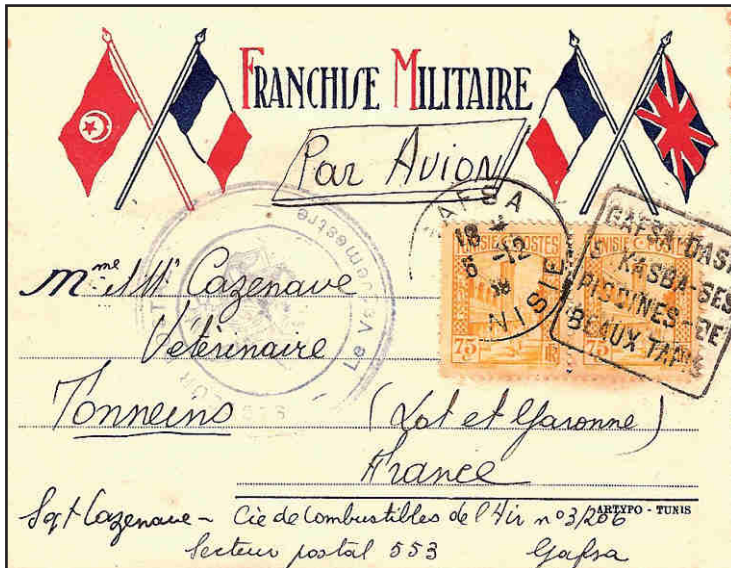 FRANCHISE MILITAIRE
Par Avion
GAFSA
18
6 -12
TUNISIE
TUNISIE POSTES
75
GAFSA-OASIS
KASBA-SES
PISCINES-DE
BEAUX TAPIS
Le Vaguemestre
Mme Mr Cazenave
Vétérinaire
Tonneins (Lot et Garonne)
France
ARTYPO - TUNIS
Sgt Cazenave - Cie de Combustibles de l'Air no 3/206
Secteur postal 553 Gafsa